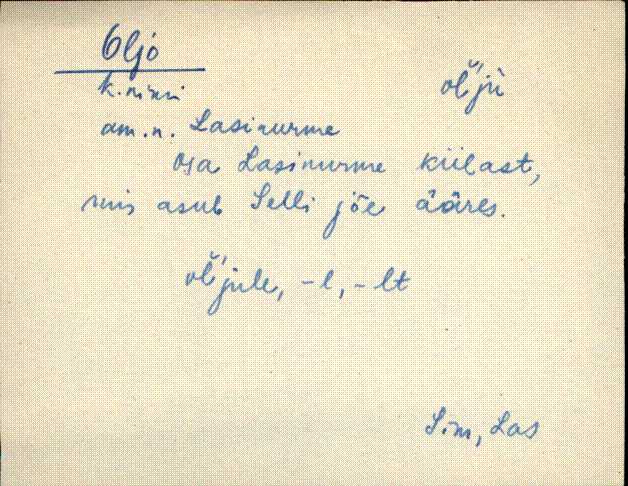 Oljo
k.nimi
ol̆'jü
am.n. Lasinurme
osa Lasinurme külast,
mis asub Selli jõe ääres.
ol̆'jule, -l, -lt
Sim, Las